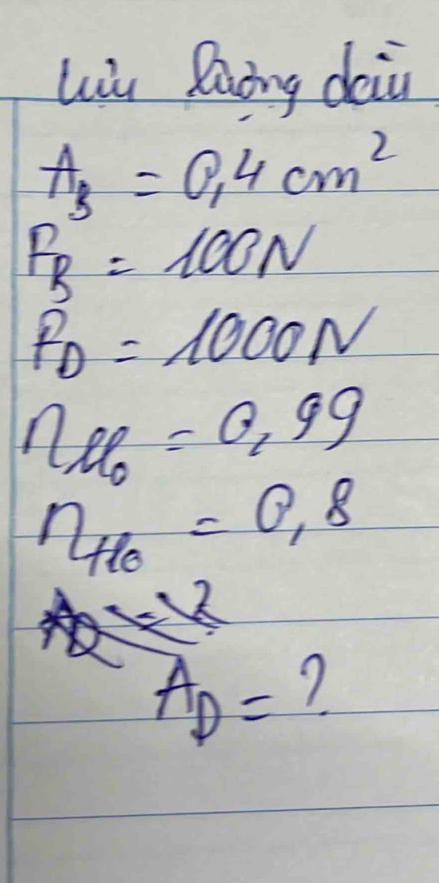 lưu lượng dầu
A_B = 0,4 cm²
F_B = 100N
F_D = 1000N
η_Mo = 0,99
η_Ho = 0,8
A_D = ?
A_D = ?